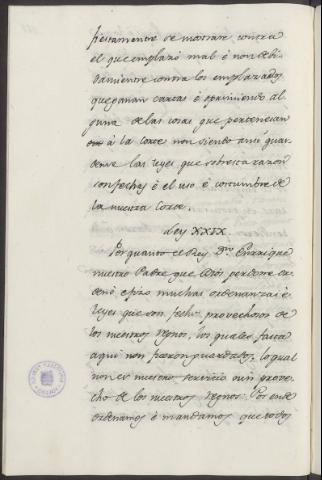 fiestamente se mostrare contra
el que emplazó mal é non debi
damiente contra los emplazados
que ganan cartas é oprimiendo al
guna de las cosas que pertenecian
á la Corte non siendo ansi guar
dense las leyes que sobresta razon
son fechas é el uso é costumbre de
la nuestra Corte.
Ley XXIX.
Por quanto el Rey Dn. Enrrique
nuestro Padre que Dios perdone or
denó é fizo muchas ordenanzas é
leyes que son fechas provechosas de
los nuestros regnos, los quales fasta
aqui non fueron guardados, lo qual
non es nuestro servicio nin prove
cho de los nuestros regnos: Por ende
ordenamos é mandamos que todos